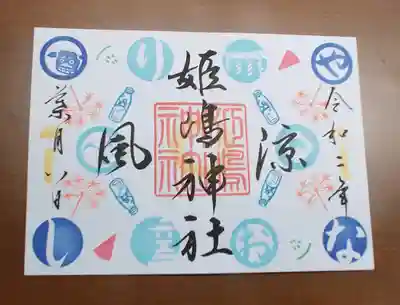 や
り
な
お
し
令和二年
涼
姫嶋神社
姫嶋神社
風
葉月八日